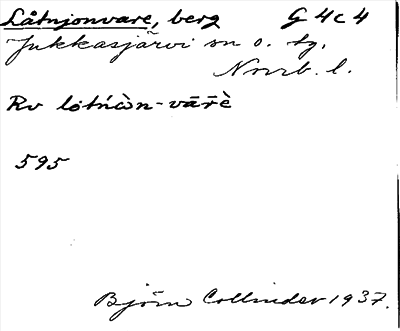 Låtnjonvare, berg G 4c4
Jukkasjärvi sn o. tg.
Norrb. l.
Rv lótńὰn-vār̄è
595
Björn Collinder 1937.